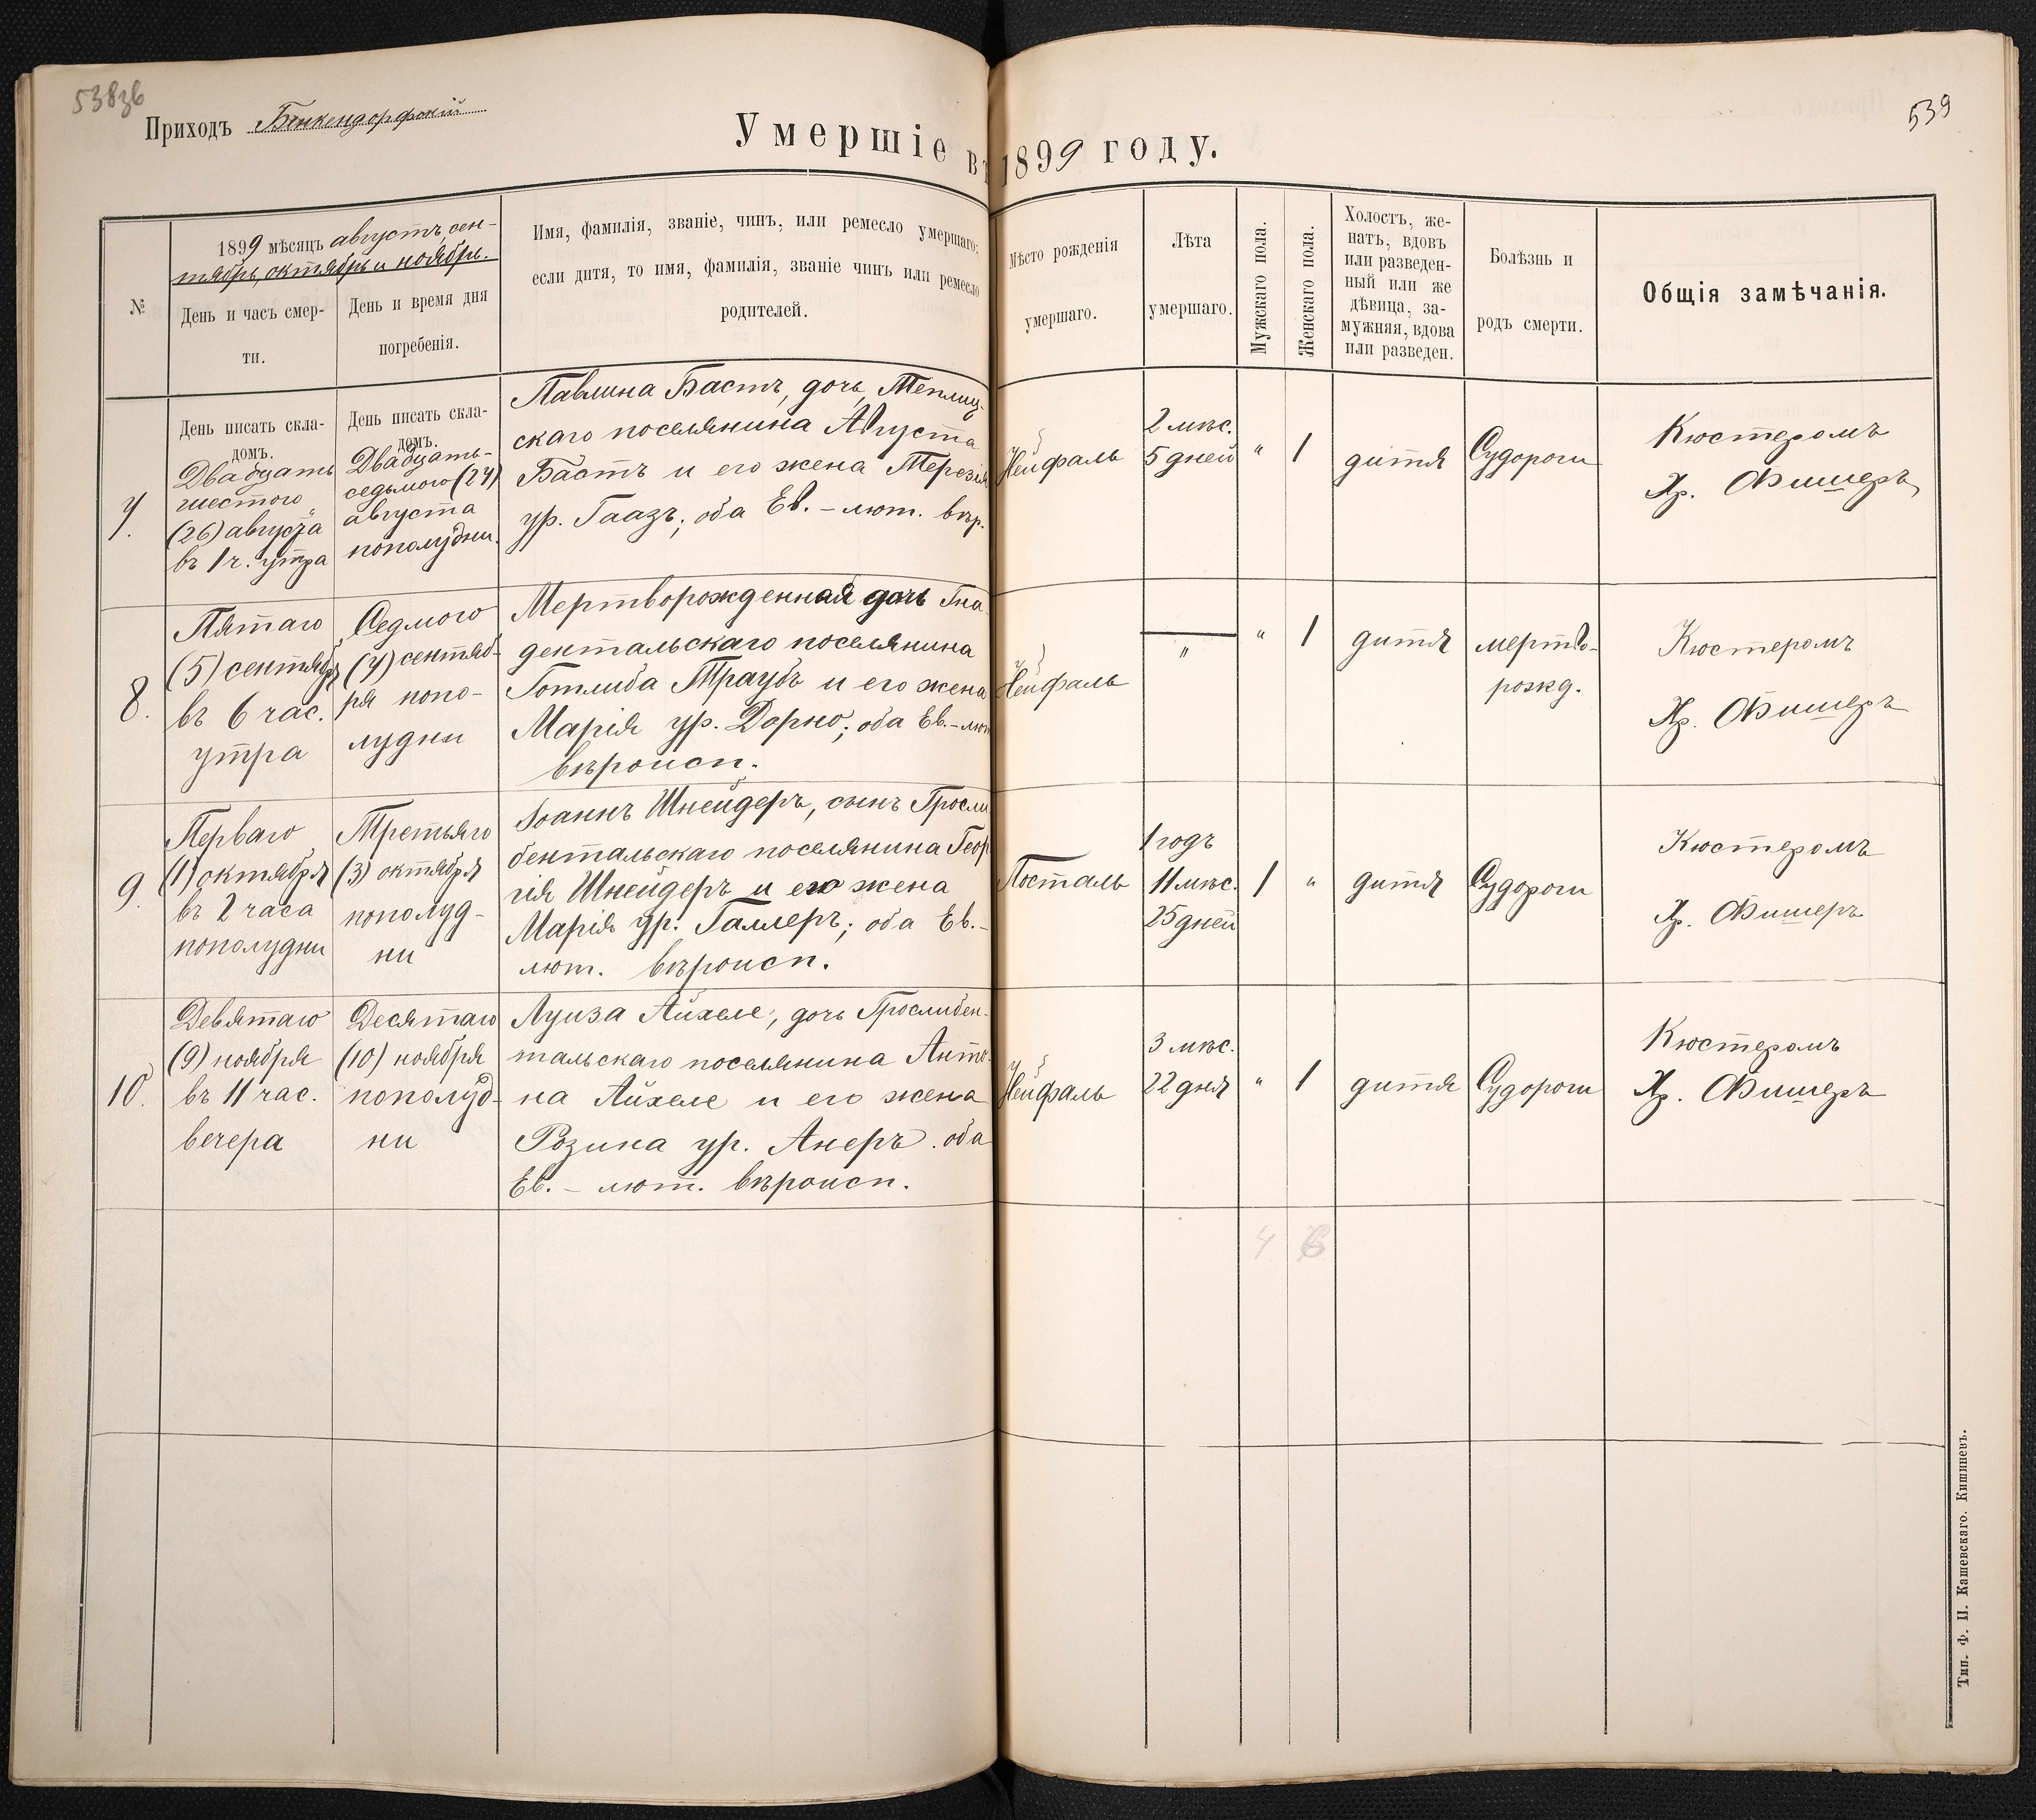 538зб
Приходъ Бенкендорфскій
Умершіе въ 1899 году.
539
№
1899 мѣсяцъ августъ, сен-
тябрь, октябрь и ноябрь.
День и часъ смер-
ти.
День и время дня
погребенія.
Имя, фамилія, званіе, чинъ, или ремесло умершаго;
если дитя, то имя, фамилія, званіе чинъ или ремесло
родителей.
Мѣсто рожденія
умершаго.
Лѣта
умершаго.
Мужскаго пола.
Женскаго пола.
Холостъ, же-
натъ, вдовъ
или разведен-
ный или же
дѣвица, за-
мужняя, вдова
или разведен.
Болѣзнь и
родъ смерти.
Общія замѣчанія.
7.
День писать скла-
домъ.
Двадцать
шестого
(26) августа
въ 1 ч. утра
День писать скла-
домъ.
Двадцать-
седьмого (27)
августа
пополудни.
Павлина Бастъ, дочь Теплиц-
скаго поселянина Августа
Бастъ и его жена Терезія
ур. Гаазъ; оба Ев. - лют. вѣр.
Нейфаль
2 мѣс.
5 дней
"
1
дитя
Судороги
Кюстеромъ
Хр. Фишеръ
8.
Пятаго
(5) сентября
въ 6 час.
утра
Седмого
(7) сентяб-
ря попо-
лудни
Мертворожденная дочь Гна-
дентальскаго поселянина
Готлиба Траубъ и его жена
Марія ур. Дорно; оба Ев.-лют
вѣроисп.
Нейфаль
"
"
1
дитя
мертво-
рожд.
Кюстеромъ
Хр. Фишеръ
9.
Перваго
(1) октября
въ 2 часа
пополудни
Третьяго
(3) октября
пополуд-
ни
Іоаннъ Шнейдеръ, сынъ Гросли
бентальскаго поселянина Геор
гія Шнейдеръ и его жена
Марія ур. Галлеръ; оба Ев.-
лют. вѣроисп.
Посталь
1 годъ
11 мѣс.
25 дней
1
"
дитя
Судороги
Кюстеромъ
Хр. Фишеръ
10.
Девятаго
(9) ноября
въ 11 час.
вечера
Десятаго
(10) ноября
пополуд-
ни
Луиза Айхеле, дочь Грослибен-
тальскаго поселянина Анто-
на Айхеле и его жена
Розина ур. Анеръ. оба
Ев. - лют. вѣроисп.
Нейфаль
3 мѣс.
22 дня
"
1
дитя
Судороги
Кюстеромъ
Хр. Фишеръ
4 6
Тип. Ф. П. Кашевскаго. Кишиневъ.